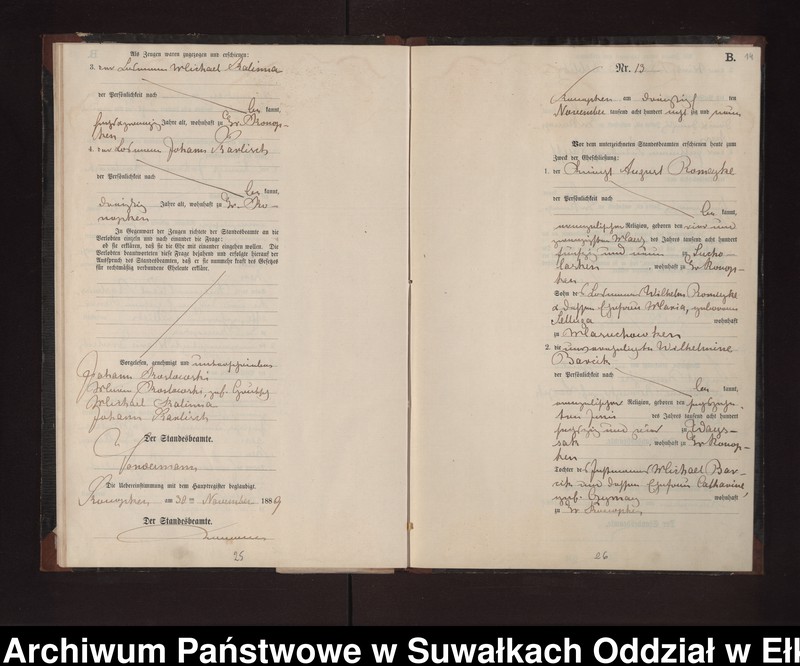 Als Zeugen waren zugezogen und erschienen:
3. der Losmann Michael Kalinna
der Persönlichkeit nach
kannt,
Jahre alt, wohnhaft zu Gr. Konop-
ken
4. der Losmann Johann
der Persönlichkeit nach
kannt,
dreißig Jahre alt, wohnhaft zu Gr. Ko-
nopken
In Gegenwart der Zeugen richtete der Standesbeamte an die
Verlobten einzeln und nach einander die Frage:
ob sie erklären, daß sie die Ehe mit einander eingehen wollen. Die
Verlobten beantworteten diese Frage bejahend und erfolgte hierauf der
Ausspruch des Standesbeamten, daß er sie nunmehr kraft des Gesetzes
für rechtmäßig verbundene Eheleute erkläre.
Vorgelesen, genehmigt und unterschrieben
Johann
geb.
Michael Kalinna
Johann
Der Standesbeamte.
Die Uebereinstimmung mit dem Hauptregister beglaubigt.
Konopken am 30ten November 1889
Der Standesbeamte.
25
B.
14
Nr. 13
Konopken am dreißigsten
November tausend acht hundert achtzig und neun
Vor dem unterzeichneten Standesbeamten erschienen heute zum
Zweck der Eheschließung:
1. der August Romeyke
der Persönlichkeit nach
kannt,
evangelischer Religion, geboren den vier und
zwanzigsten März des Jahres tausend acht hundert
fünfzig und neun zu Sucho-
lasken, wohnhaft zu Gr. Konop-
ken
Sohn des Losmann Wilhelm Romeyke
dessen Ehefrau Maria, geborene
wohnhaft
zu
2. die unverehelichte Wilhelmine
Barcik
der Persönlichkeit nach
kannt,
evangelischer Religion, geboren den sechszehn-
ten Juni des Jahres tausend acht hundert
sechszig und vier zu
wohnhaft zu Gr. Konop-
ken
Tochter des Michael Bar-
cik und dessen Ehefrau Catharine,
geb. wohnhaft
zu Gr. Konopken
26
Archiwum Państwowe w Suwałkach Oddział w Ełk